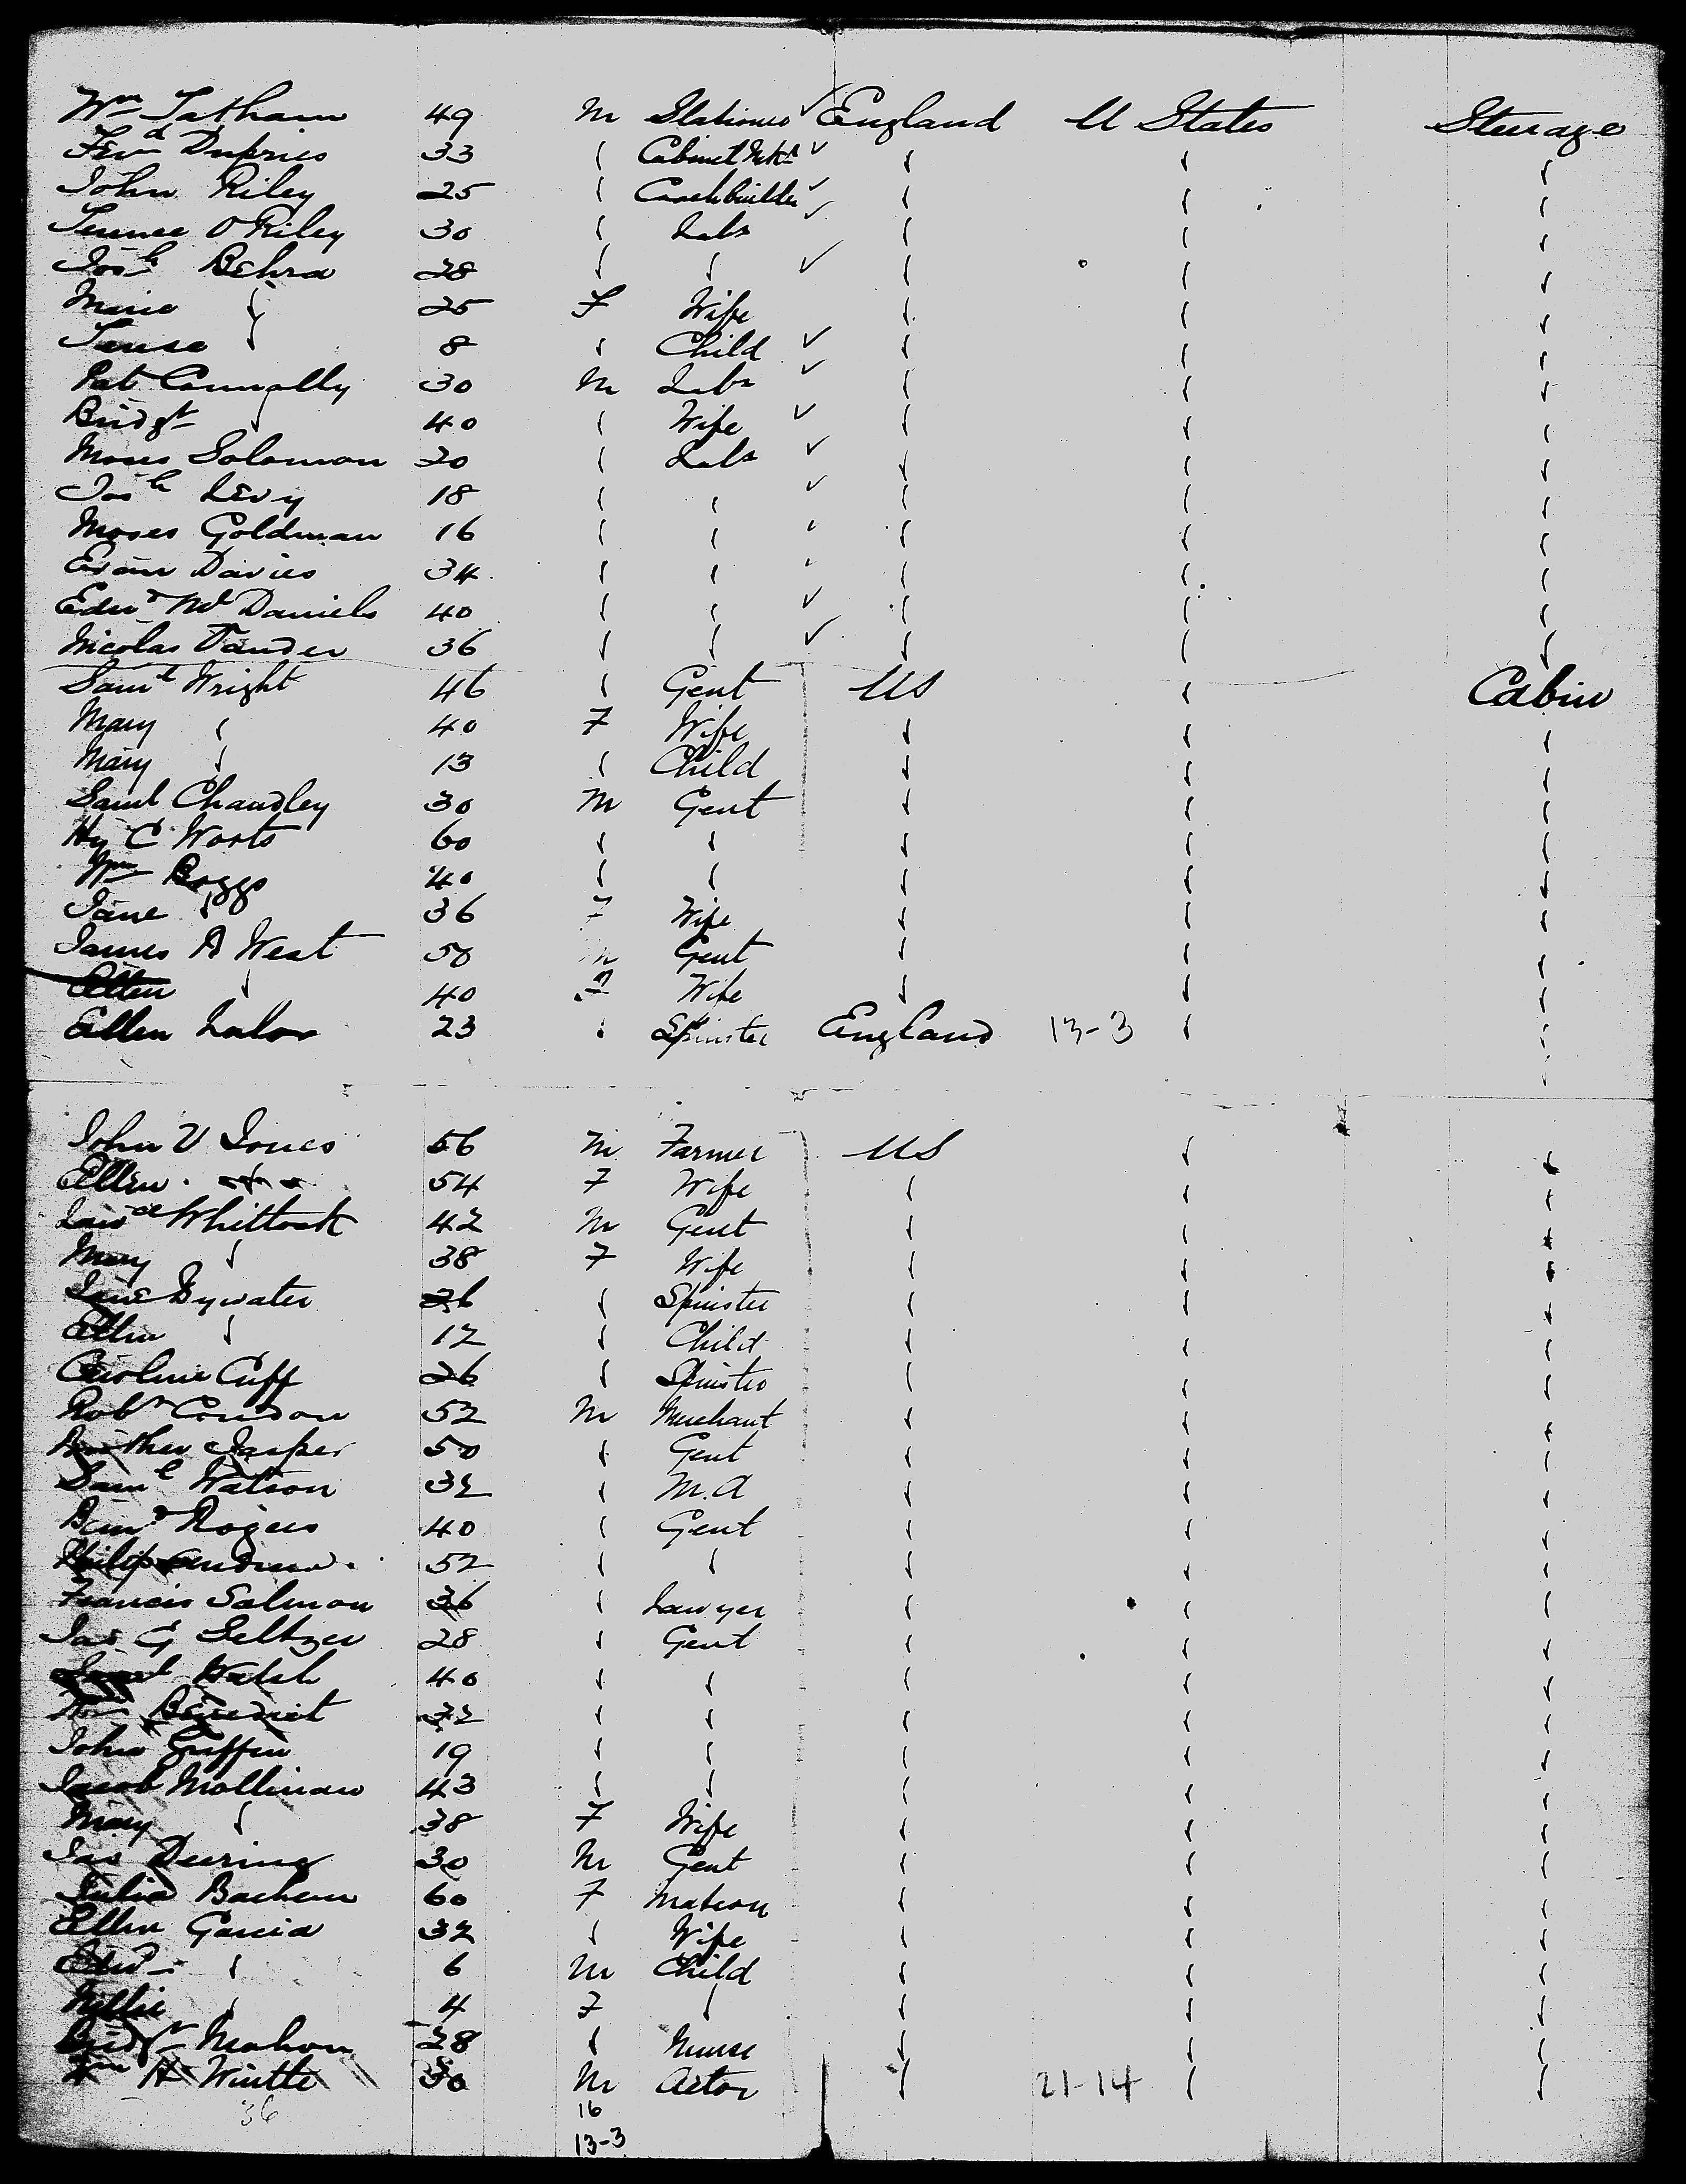 Wm Tatham 49 M Stationer ✓ England U States Steerage
Ferd Dupries 33 Cabinet Mkr ✓
John Riley 25 Coachbuilder ✓
Terence O'Riley 30 Labr ✓
Josh Behra 28 ✓
Marie 25 F Wife
8 Child ✓
Pat Connolly 30 M Labr ✓
Bridgt 40 Wife ✓
Moses Solomon 30 Labr ✓
Josh Levy 18 ✓
Moses Goldman 16
Evan Davies 34
Edwd McDaniels 40 ✓
Nicolas Vander 36 ✓
Saml Wright 46 Gent US Cabin
Mary 40 F Wife
Mary 13 Child
Saml Chandley 30 M Gent
Hy C Worts 60
Wm Boggs 40
Jane 36 F Wife
James A West 50 M Gent
Ellen 40 F Wife
Ellen Lalor 23 Spinster England 13-3
John V Jones 56 M Farmer US
Ellen 54 F Wife
Lawce Whitlock 42 M Gent
Mary 38 F Wife
Jane Bywater 26 Spinster
Ellen 12 Child
Caroline Cuff 26 Spinster
Robt Condon 52 M Merchant
Jasper 50 Gent
Saml Watson 32 M.A
Rogers 40 Gent
Philip Andrew 52
Francis Salmon 36 Lawyer
Jas G Seltzer 28 Gent
Walsh 40
Benedict 32
John Griffin 19
Jacob Mollinaw 43
Mary 38 F Wife
Jas Deering 30 M Gent
Julia Bachem 60 F Matron
Ellen Garcia 32 Wife
Edwd 6 M Child
Nellie 4 F
Bridgt Mahon 28 Nurse
Wm H Wintle 30 M Actor 21-14
36 16
13-3